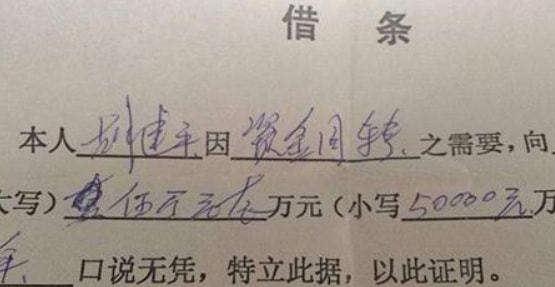 借 条
本人建平因资金周转之需要，向
大写）伍万元万元（小写50000元万
口说无凭，特立此据，以此证明。